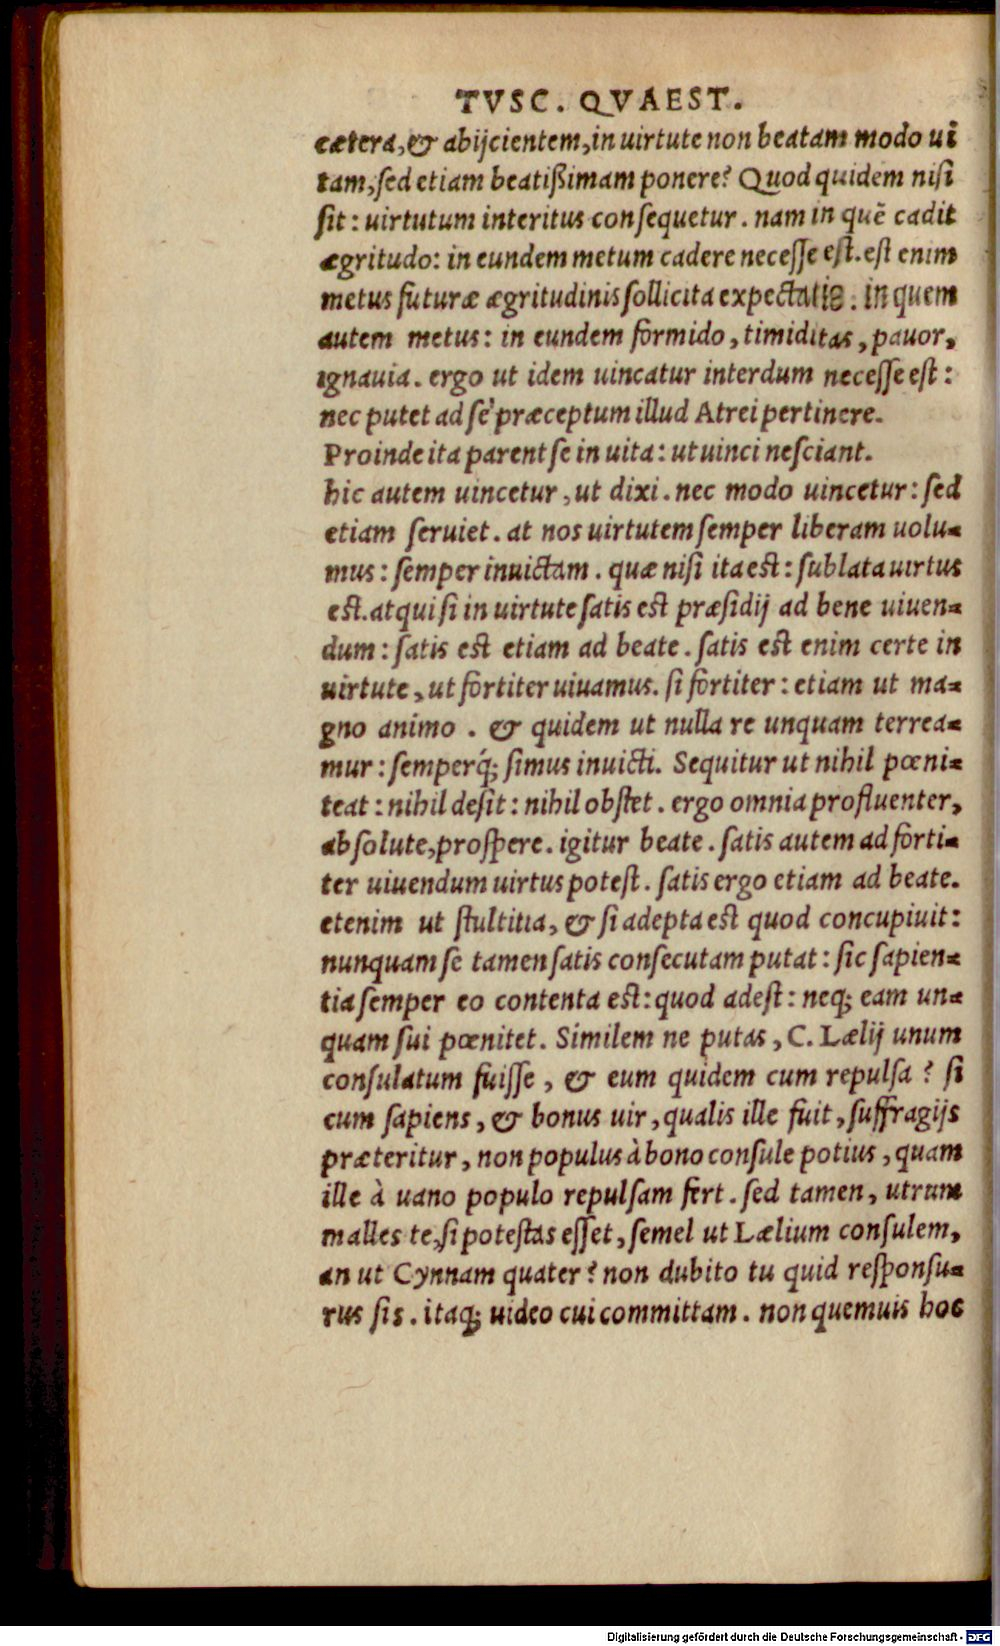 TVSC. QVAEST.
cætera, & abijcientem, in uirtute non beatam modo uĩ
tam, sed etiam beatißimam ponere? Quod quidem nisi
sit: uirtutum interitus consequetur. nam in quẽ cadit
ægritudo: in eundem metum cadere necesse est. est enim
metus futuræ ægritudinis sollicita expectatio: in quem
autem metus: in eundem formido, timiditas, pauor,
ignauia. ergo ut idem uincatur interdum necesse est:
nec putet ad se præceptum illud Atrei pertinere.
Proinde ita parent se in uita: ut uinci nesciant.
hic autem uincetur, ut dixi. nec modo uincetur: sed
etiam seruiet. at nos uirtutem semper liberam uolu-
mus: semper inuictam. quæ nisi ita est: sublata uirtus
est. atqui si in uirtute satis est præsidij ad bene uiuen-
dum: satis est etiam ad beate. satis est enim certe in
uirtute, ut fortiter uiuamus. si fortiter: etiam ut ma-
gno animo. & quidem ut nulla re unquam terrea-
mur: semperq́; simus inuicti. Sequitur ut nihil pœni-
teat: nihil desit: nihil obstet. ergo omnia profluenter,
absolute, prospere. igitur beate. satis autem ad forti-
ter uiuendum uirtus potest. satis ergo etiam ad beate.
etenim ut stultitia, & si adepta est quod concupiuit:
nunquam se tamen satis consecutam putat: sic sapien-
tia semper eo contenta est: quod adest: neq; eam un-
quam sui pœnitet. Similem ne putas, C. Lælij unum
consulatum fuisse, & eum quidem cum repulsa? si
cum sapiens, & bonus uir, qualis ille fuit, suffragijs
præteritur, non populus à bono consule potius, quam
ille à uano populo repulsam fert. sed tamen, utrum
malles te, si potestas esset, semel ut Lælium consulem,
an ut Cynnam quater? non dubito tu quid responsu-
rus sis. itaq; uideo cui committam. non quemuis hoc
Digitalisierung gefördert durch die Deutsche Forschungsgemeinschaft - DFG